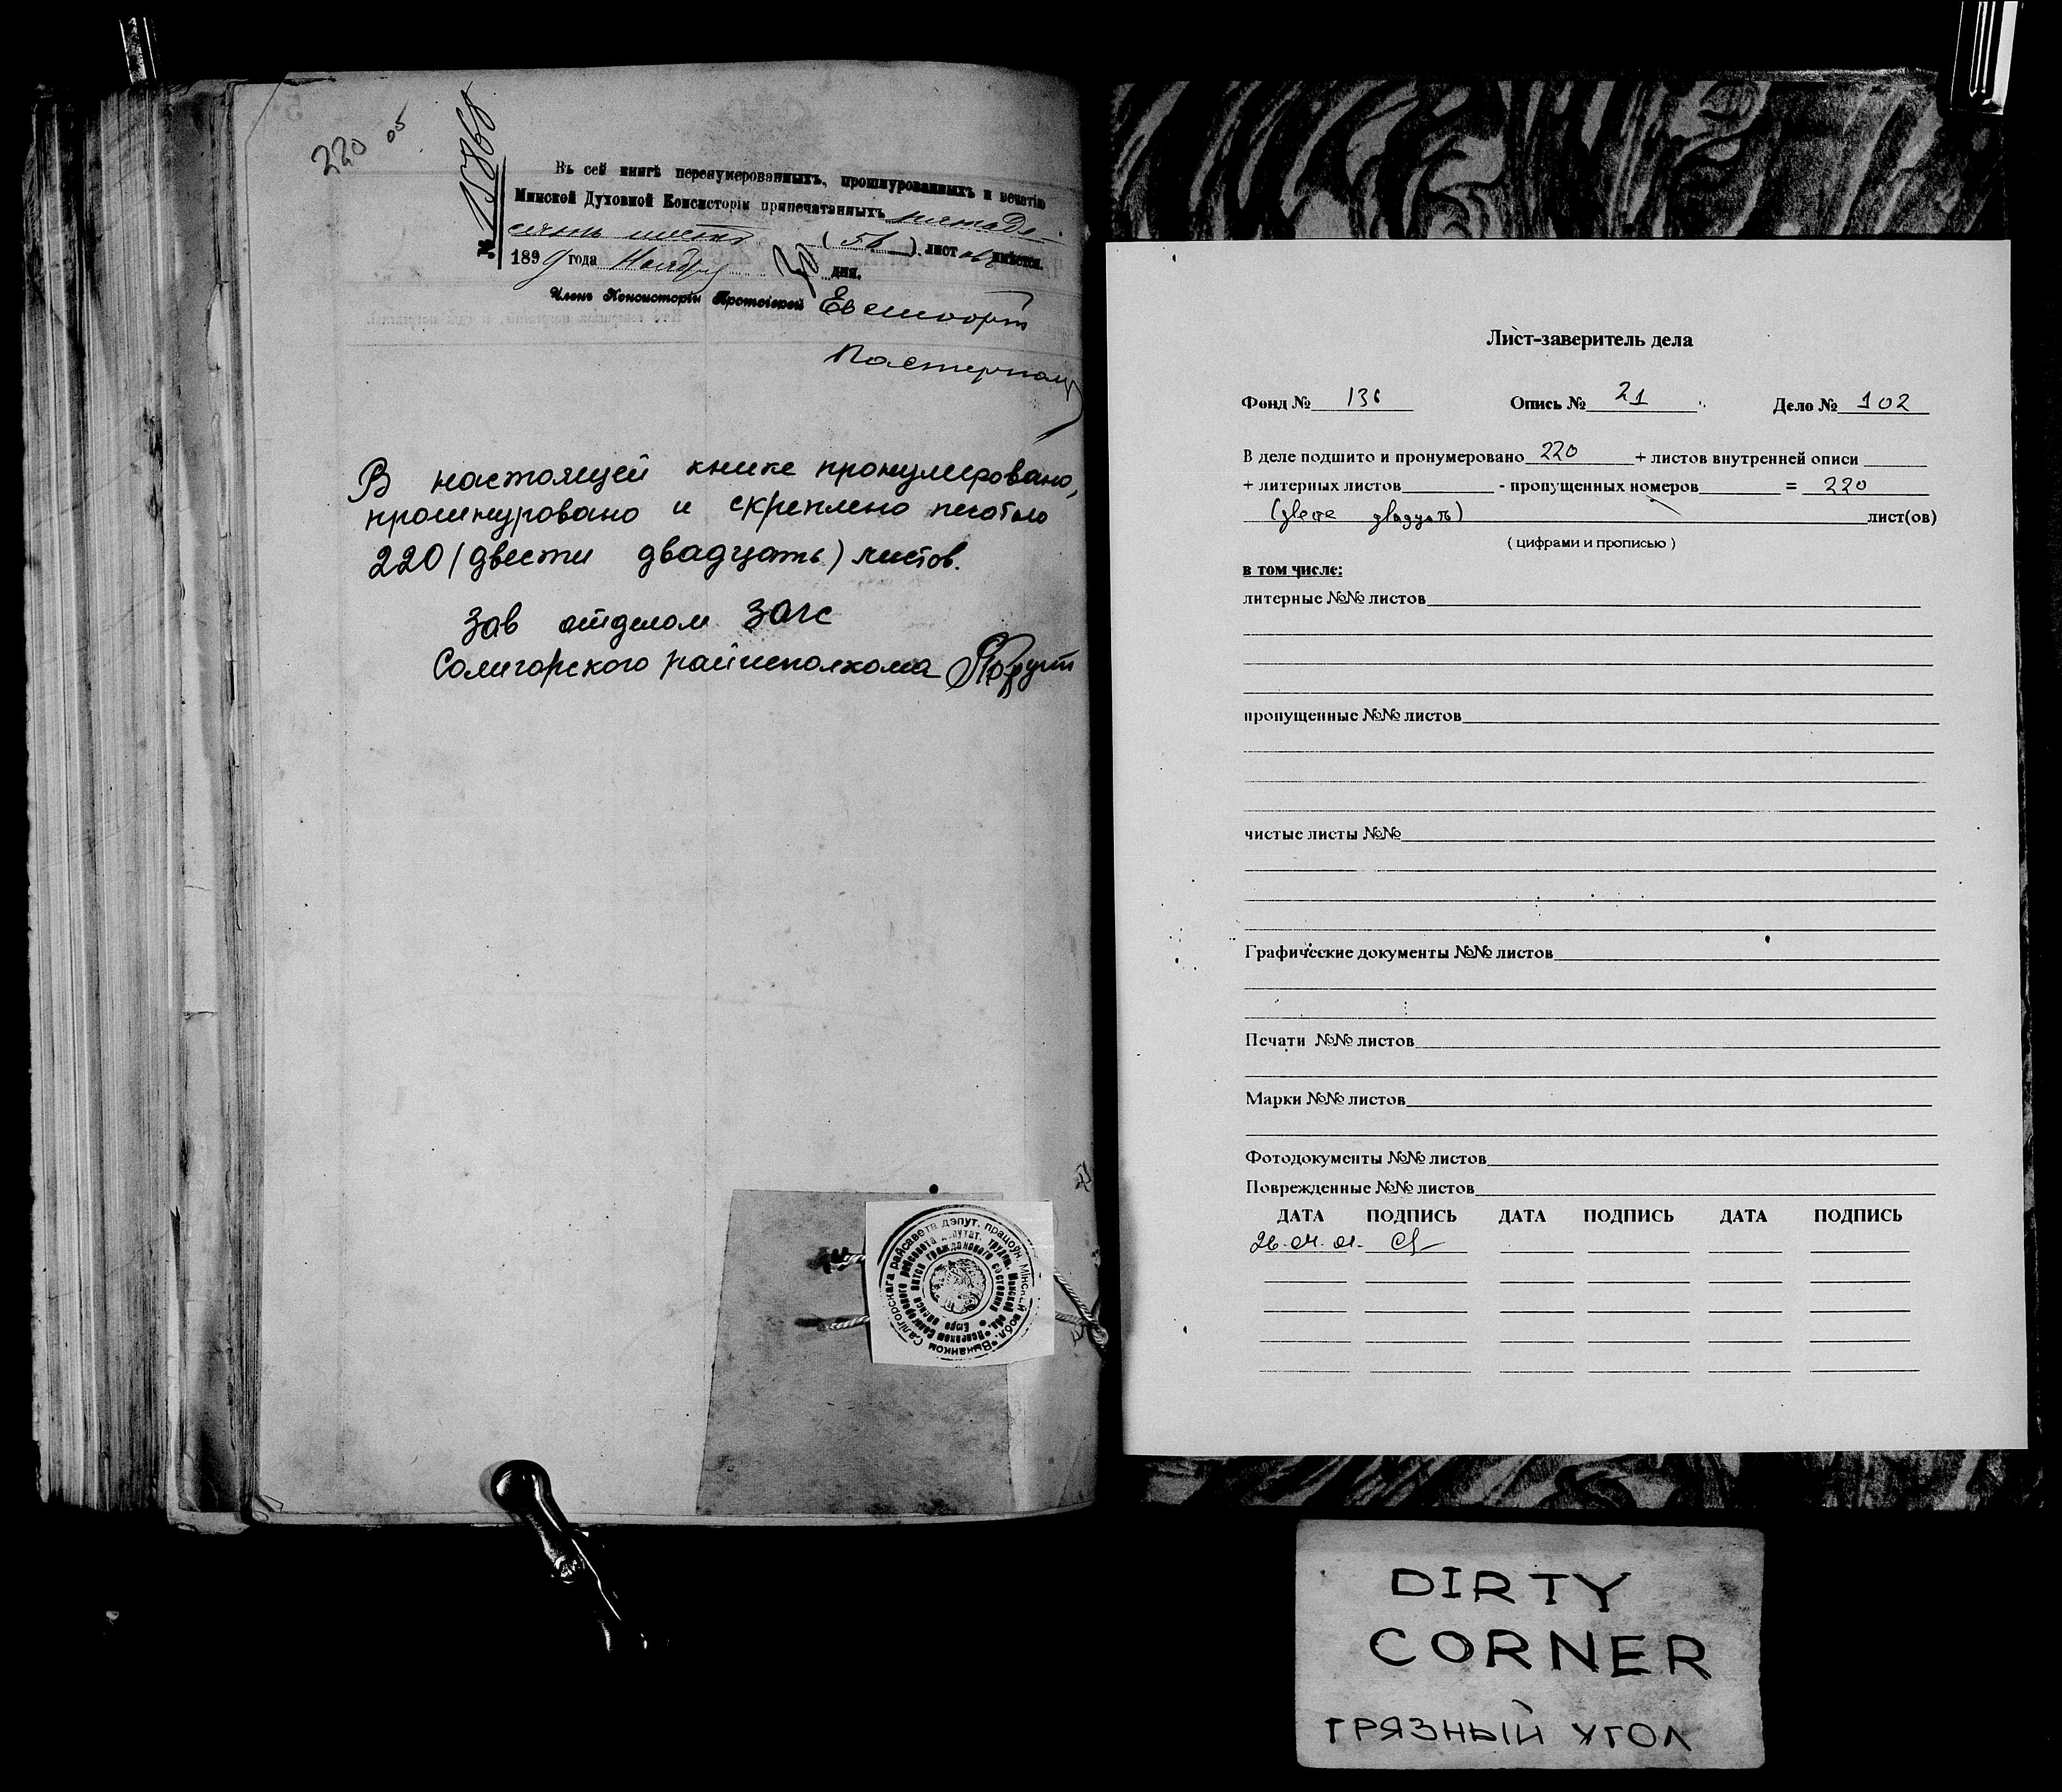 220 об
№ 15868
Въ сей книгѣ перенумерованныхъ, прошнурованныхъ и печатію
Минской Духовной Консисторіи припечатанныхъ пятьде-
сятъ шесть (56) листовъ имѣется.
1899 года Ноября 30 дня.
Членъ Консисторіи Протоіерей
В настоящей книге пронумеровано,
прошнуровано и скреплено печатью
220 (двести двадцать) листов.
Зав отделом ЗАГС
Солигорского райисполкома
Лист-заверитель дела
Фонд № 136 Опись № 21 Дело № 102
В деле подшито и пронумеровано 220 + листов внутренней описи
+ литерных листов - пропущенных номеров = 220
(двести двадцать) лист(ов)
( цифрами и прописью )
в том числе:
литерные №№ листов
пропущенные №№ листов
чистые листы №№
Графические документы №№ листов
Печати №№ листов
Марки №№ листов
Фотодокументы №№ листов
Поврежденные №№ листов
ДАТА ПОДПИСЬ ДАТА ПОДПИСЬ ДАТА ПОДПИСЬ
26.04.01.
DIRTY
CORNER
ГРЯЗНЫЙ УГОЛ